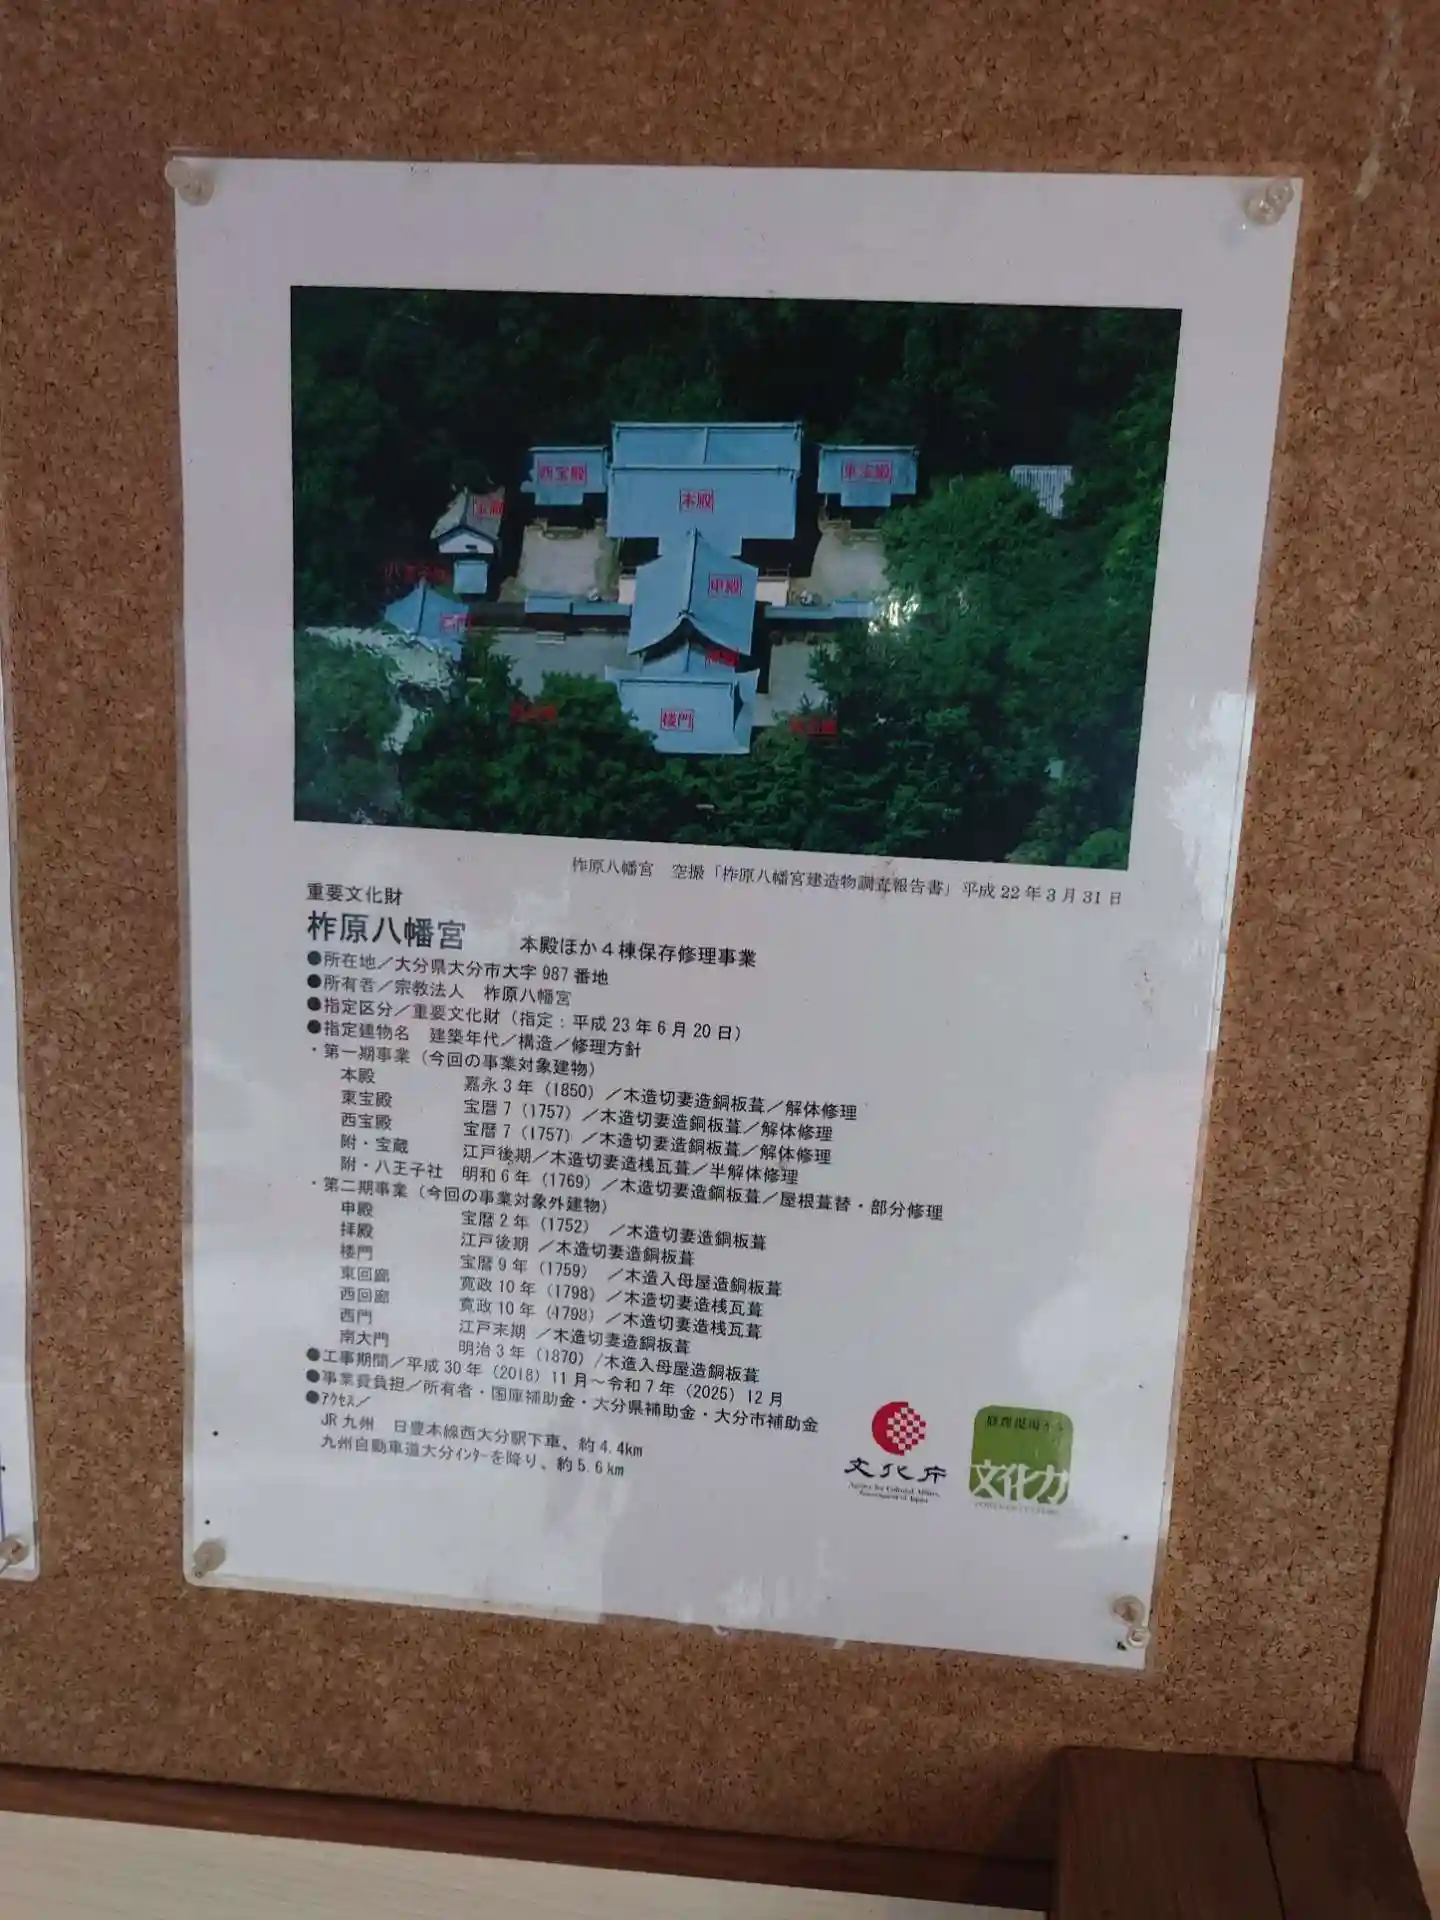 西宝殿
東宝殿
本殿
宝殿
申殿
楼門
柞原八幡宮 空撮「柞原八幡宮建造物調査報告書」平成22年3月31日
重要文化財
柞原八幡宮 本殿ほか4棟保存修理事業
●所在地/大分県大分市大字987番地
●所有者/宗教法人 柞原八幡宮
●指定区分/重要文化財(指定:平成23年6月20日)
●指定建物名 建築年代/構造/修理方針
・第一期事業(今回の事業対象建物)
本殿 嘉永3年(1850)/木造切妻造銅板葺/解体修理
東宝殿 宝暦7(1757)/木造切妻造銅板葺/解体修理
西宝殿 宝暦7(1757)/木造切妻造銅板葺/解体修理
附・宝蔵 江戸後期/木造切妻造桟瓦葺/半解体修理
附・八王子社 明和6年(1769)/木造切妻造銅板葺/屋根葺替・部分修理
・第二期事業(今回の事業対象外建物)
申殿 宝暦2年(1752) /木造切妻造銅板葺
拝殿 江戸後期 /木造切妻造銅板葺
楼門 宝暦9年(1759) /木造入母屋造銅板葺
東回廊 寛政10年(1798)/木造切妻造桟瓦葺
西回廊 寛政10年(1798)/木造切妻造桟瓦葺
西門 江戸末期 /木造切妻造銅板葺
南大門 明治3年(1870)/木造入母屋造銅板葺
●工事期間/平成30年(2018)11月~令和7年(2025)12月
●事業費負担/所有者・国庫補助金・大分県補助金・大分市補助金
●アクセス/
JR九州 日豊本線西大分駅下車、約4.4km
九州自動車道大分インターを降り、約5.6km
文化庁
Agency for Cultural Affairs,
Government of Japan
修理現場から
文化力